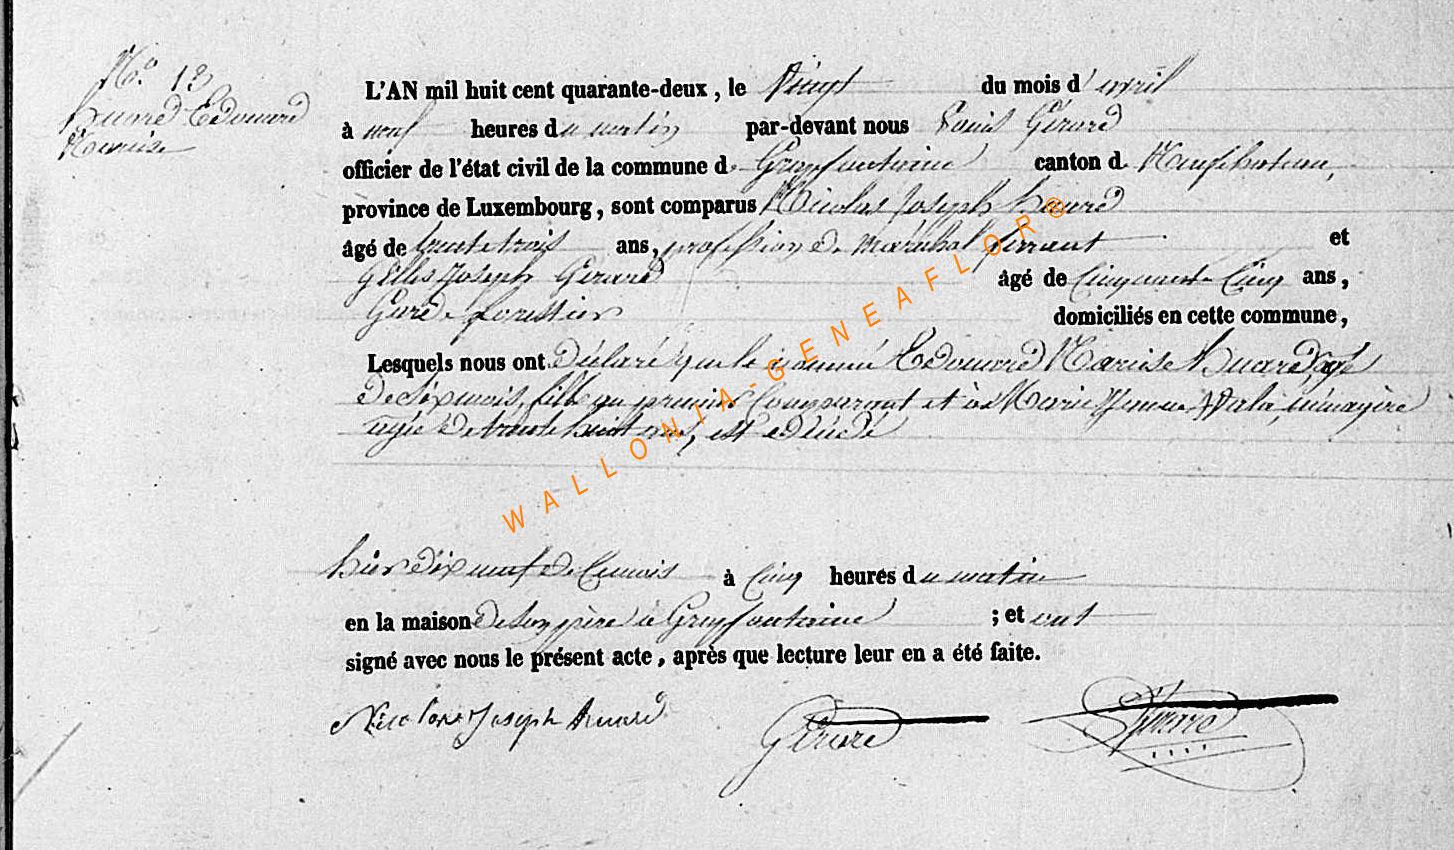 No. 13
Huard Edouard
L'AN mil huit cent quarante-deux, le Vingt du mois d'avril
à neuf heures du matin par-devant nous Louis Gérard
officier de l'état civil de la commune de Grapfontaine canton de Neufchateau,
province de Luxembourg, sont comparus Nicolas Joseph Huard
âgé de trente trois ans, profession de Maréchal ferrant et
Gilles Joseph Gérard âgé de Cinquante Cinq ans,
Garde forestier domiciliés en cette commune,
Lesquels nous ont Déclaré que le nommé Edouard Huard, agé
De Six mois, fils du premier Comparant et de Marie ménagère
agée De trente huit ans, est décédé
hier dix neuf de Ce mois à Cinq heures du matin
en la maison De Son père à Grapfontaine ; et ont
signé avec nous le présent acte, après que lecture leur en a été faite.
Nicolas Joseph Huard Gérard Gérard
WALLONIA-GENEAFLOR®